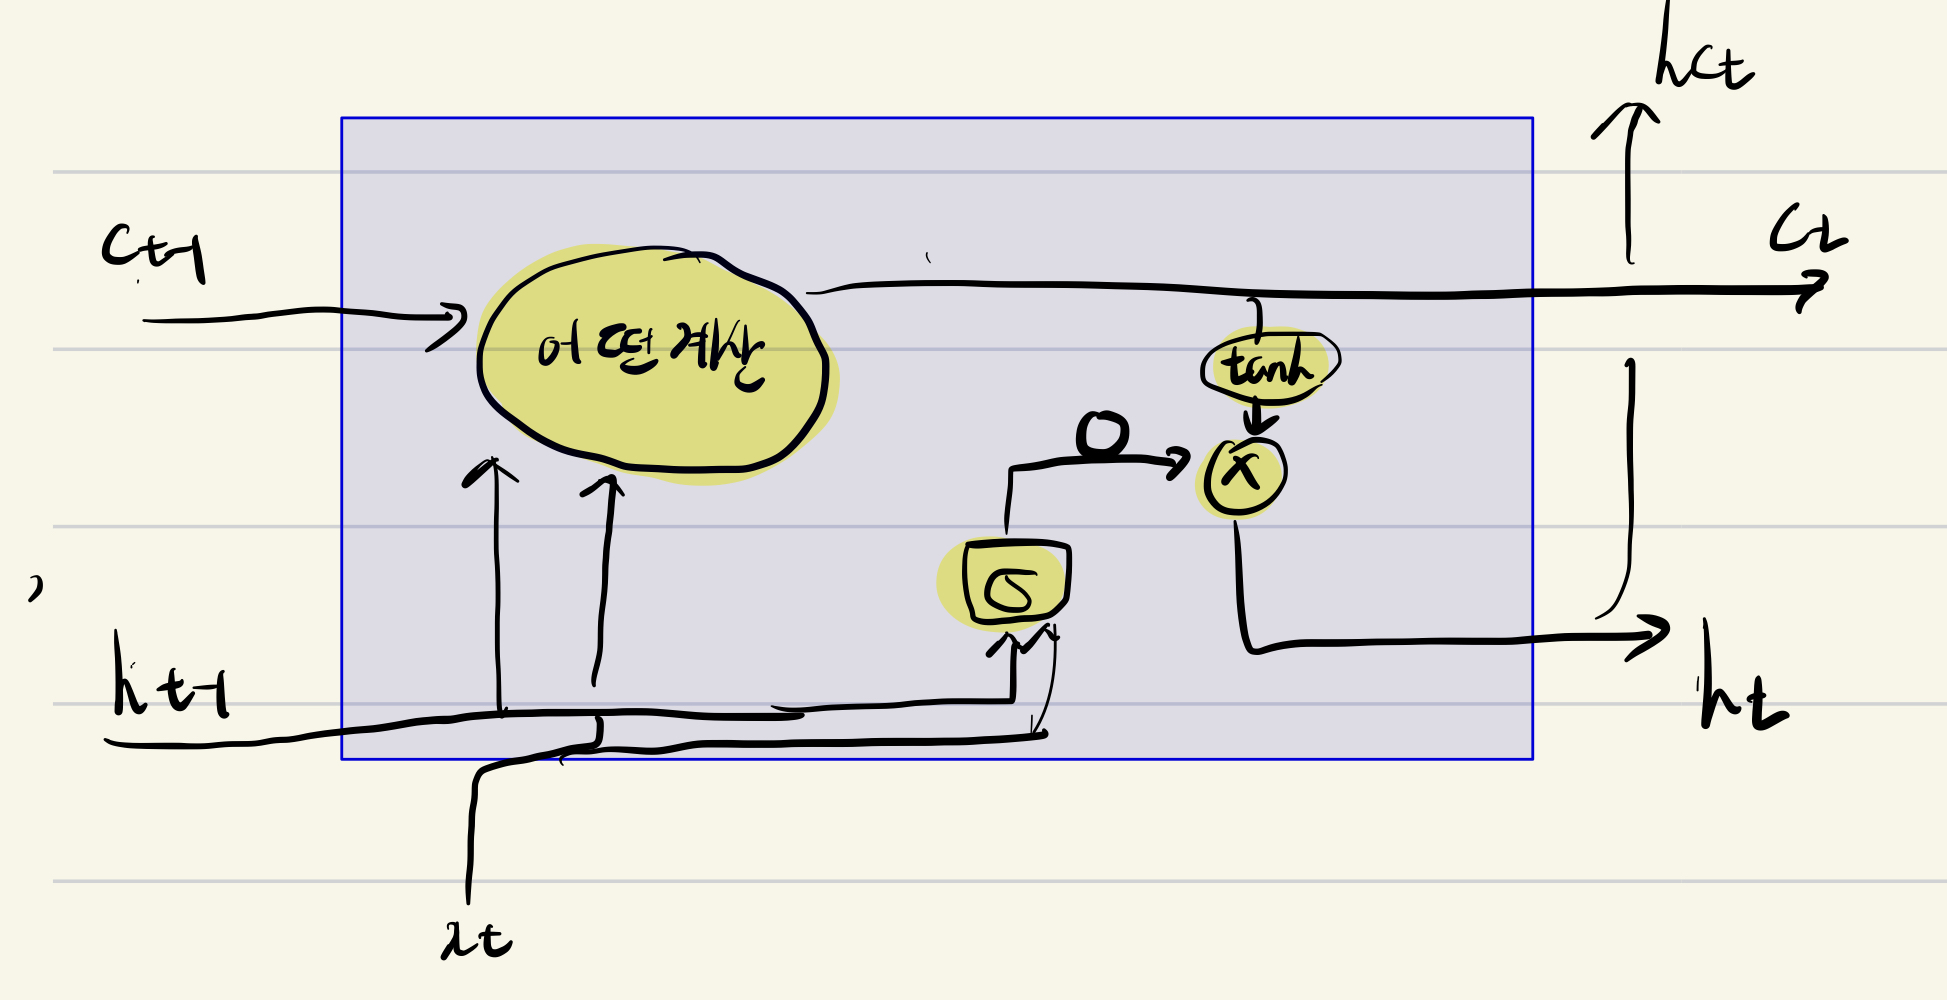 hCt
Ct-1
Ct
어떤 계산
tanh
O
x
σ
ht-1
ht
xt